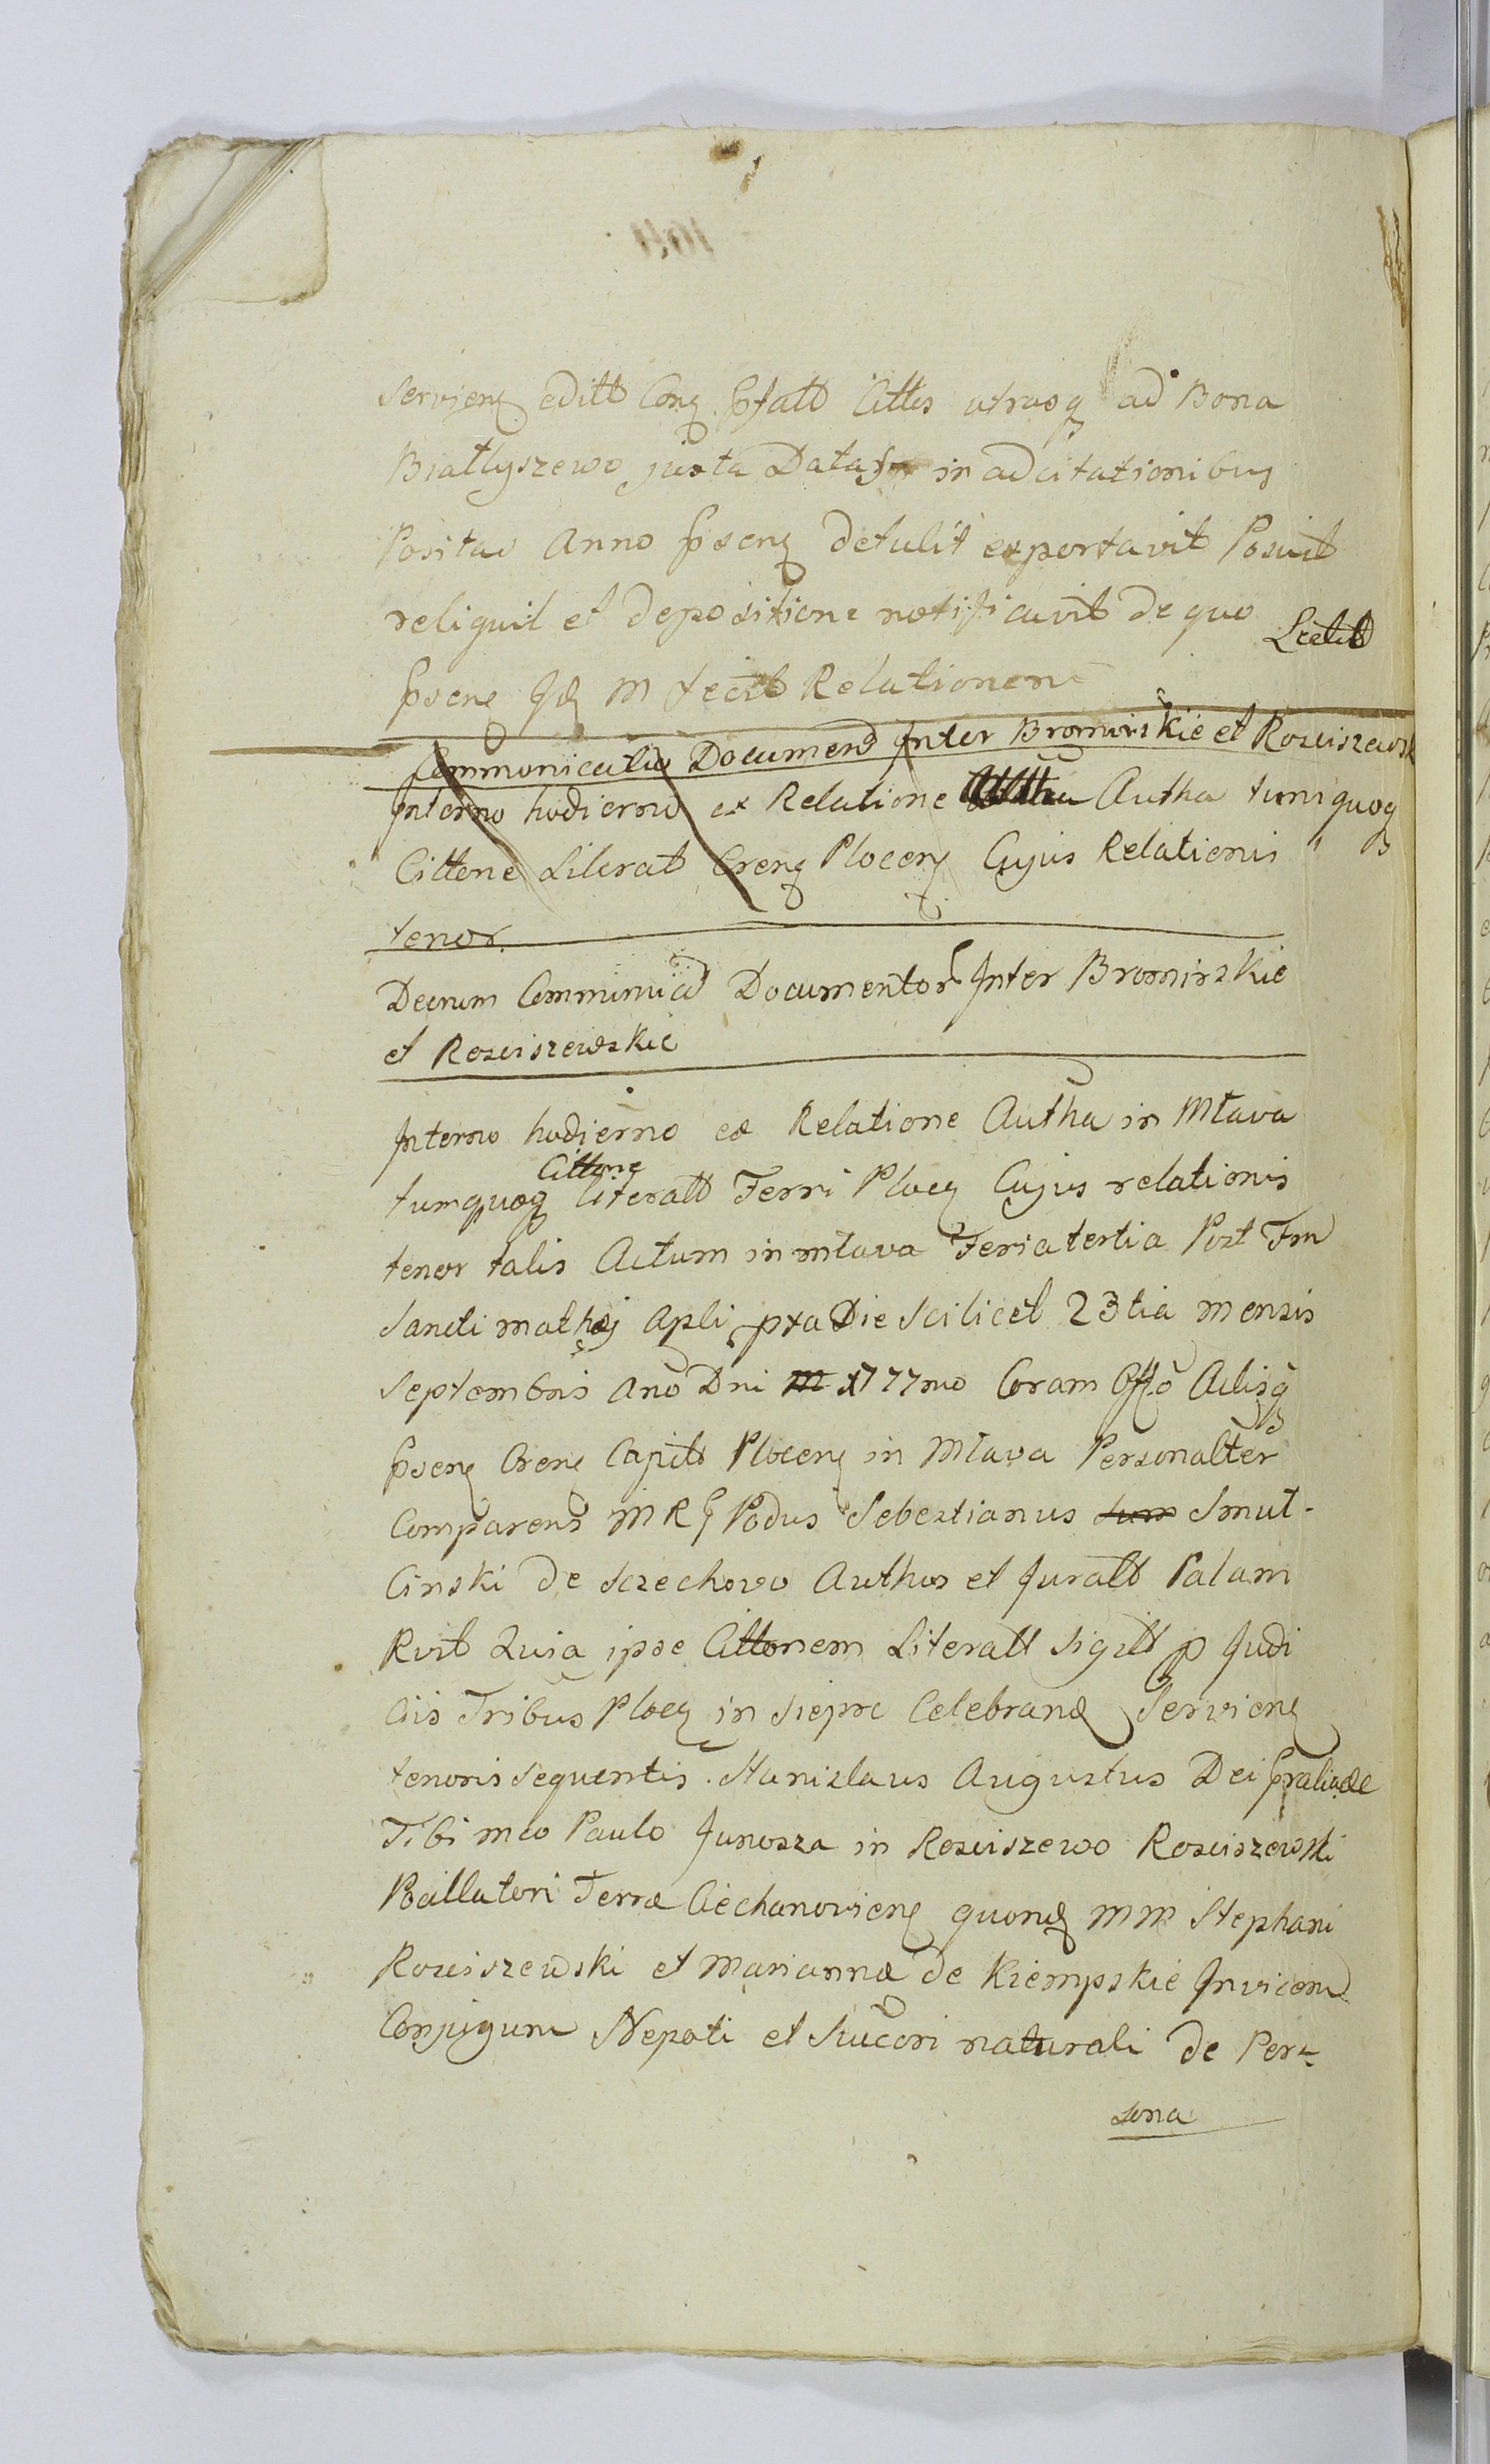 Servienꝫ editt Conꝫ Pfatt Cittes utrasq ad Bona
Białłyszewo juxta Datas in adcitationibus
Positas Anno Psenꝫ detulit exportavit Posuit
reliquit et depositione notificavit de quo
Lectℓ
Psens Jdꝫ M fecit Relationem
Communicatio Documend Inter Bromirskie et Rosciszewsk
Interno hodierno ex Relatione Autha tumquoq
Cittone Literat Crenꝫ Plocenꝫ Cujus Relationis
tenor
Decrum Communicad Documentor Inter Bromirskie
et Rosciszewskie
Interno hodierno ex Relatione Autha in Mława
Cittone
tumquoq literatt Terri Plocꝫ Cujus relationis
tenor talis Actum in mława Feria tertia Post Fm
Sancti mathej Apli pxa Die Scilicet 23tia mensis
Septembris Ano Dni m 1777mo Coram Offo Actisq
Psenꝫ Crens Capitt Plocenꝫ in Mława Personalter
Comparens MRꝫ Podus Sebestianus Sum Smul-
Cinski de Szechowo Authus et Juratt Palam
Rvit Quia ipse Cittonem Literatt Sigitt p Judi
Ciis Tribus Plocꝫ in Sieprc Celebrand Servienꝫ
tenoris sequentis. Stanislaus Augustus Dei Gratia &c
Tibi mco Paulo Junosza in Rosciszewo Rosciszewski
Pocillatori Terræ Ciechanovienꝫ quondꝫ MM Stephani
Rosciszewski et Mariannæ de Kiempskie Invicem
Conjugum Nepoti et Succori naturali de Per-
sona